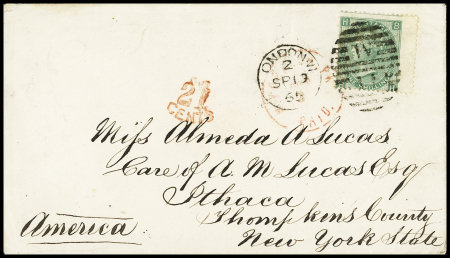 H B
LONDON.W
2
SP 13
65
PAID.
21
CENTS
Miss Almeda A Lucas
Care of A. M Lucas Esq
Ithaca
Thompkin's County
America
New York State